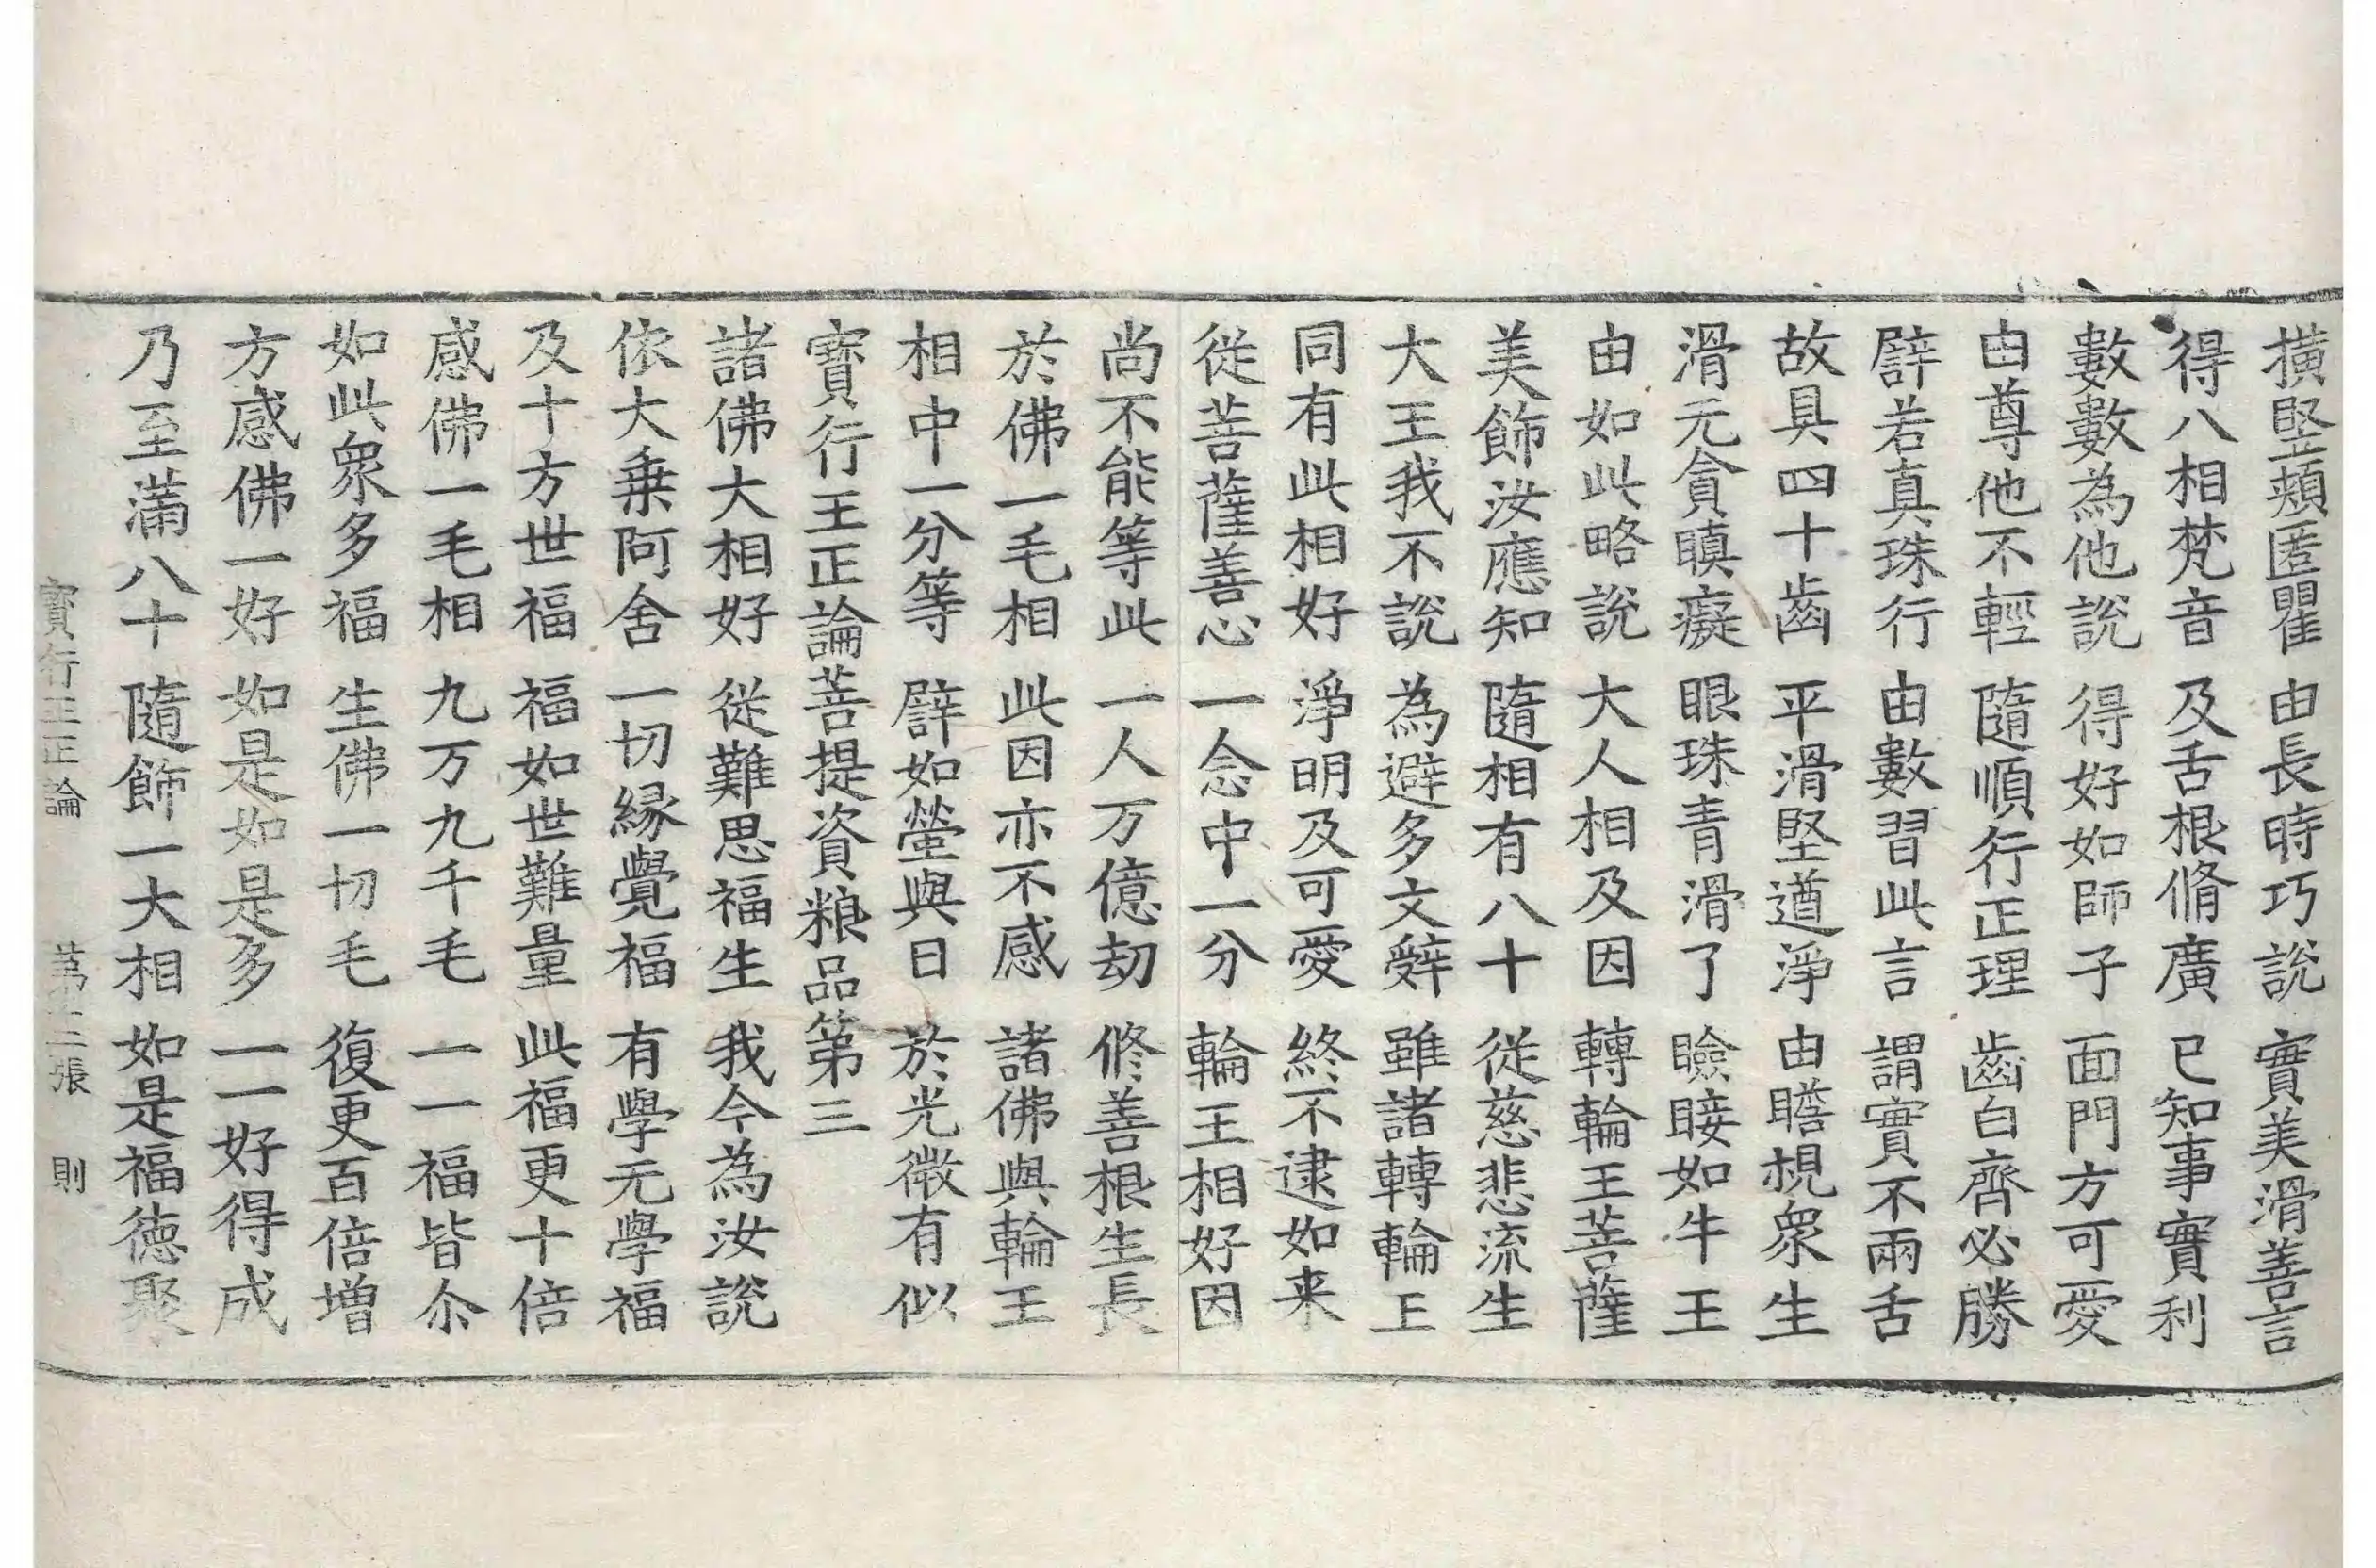 橫堅頰匿瞿 由長時巧說 實美滑善言
得八相梵音 及舌根脩廣 已知事實利
數數為他說 得好如師子 面門方可愛
由尊他不輕 隨順行正理 齒白齊必勝
譬若真珠行 由數習此言 謂實不兩舌
故具四十齒 平滑堅遒淨 由瞻視衆生
滑元貪瞋癡 眼珠青滑了 瞼睫如牛王
由如此略說 大人相及因 轉輪王菩薩
美飾汝應知 隨相有八十 從慈悲流生
大王我不說 為避多文辭 雖諸轉輪王
同有此相好 淨明及可愛 終不逮如来
從菩薩善心 一念中一分 輪王相好因
尚不能等此 一人万億劫 修善根生長
於佛一毛相 此因亦不感 諸佛與輪王
相中一分等 譬如螢與日 於光微有似
寶行王正論菩提資粮品第三
諸佛大相好 從難思福生 我今為汝說
依大乗阿舍 一切縁覺福 有學元學福
及十方世福 福如世難量 此福更十倍
感佛一毛相 九万九千毛 一一福皆尒
如此衆多福 生佛一切毛 復更百倍增
方感佛一好 如是如是多 一一好得成
乃至滿八十 隨飾一大相 如是福徳聚
寶行王正論 苐十二張 則